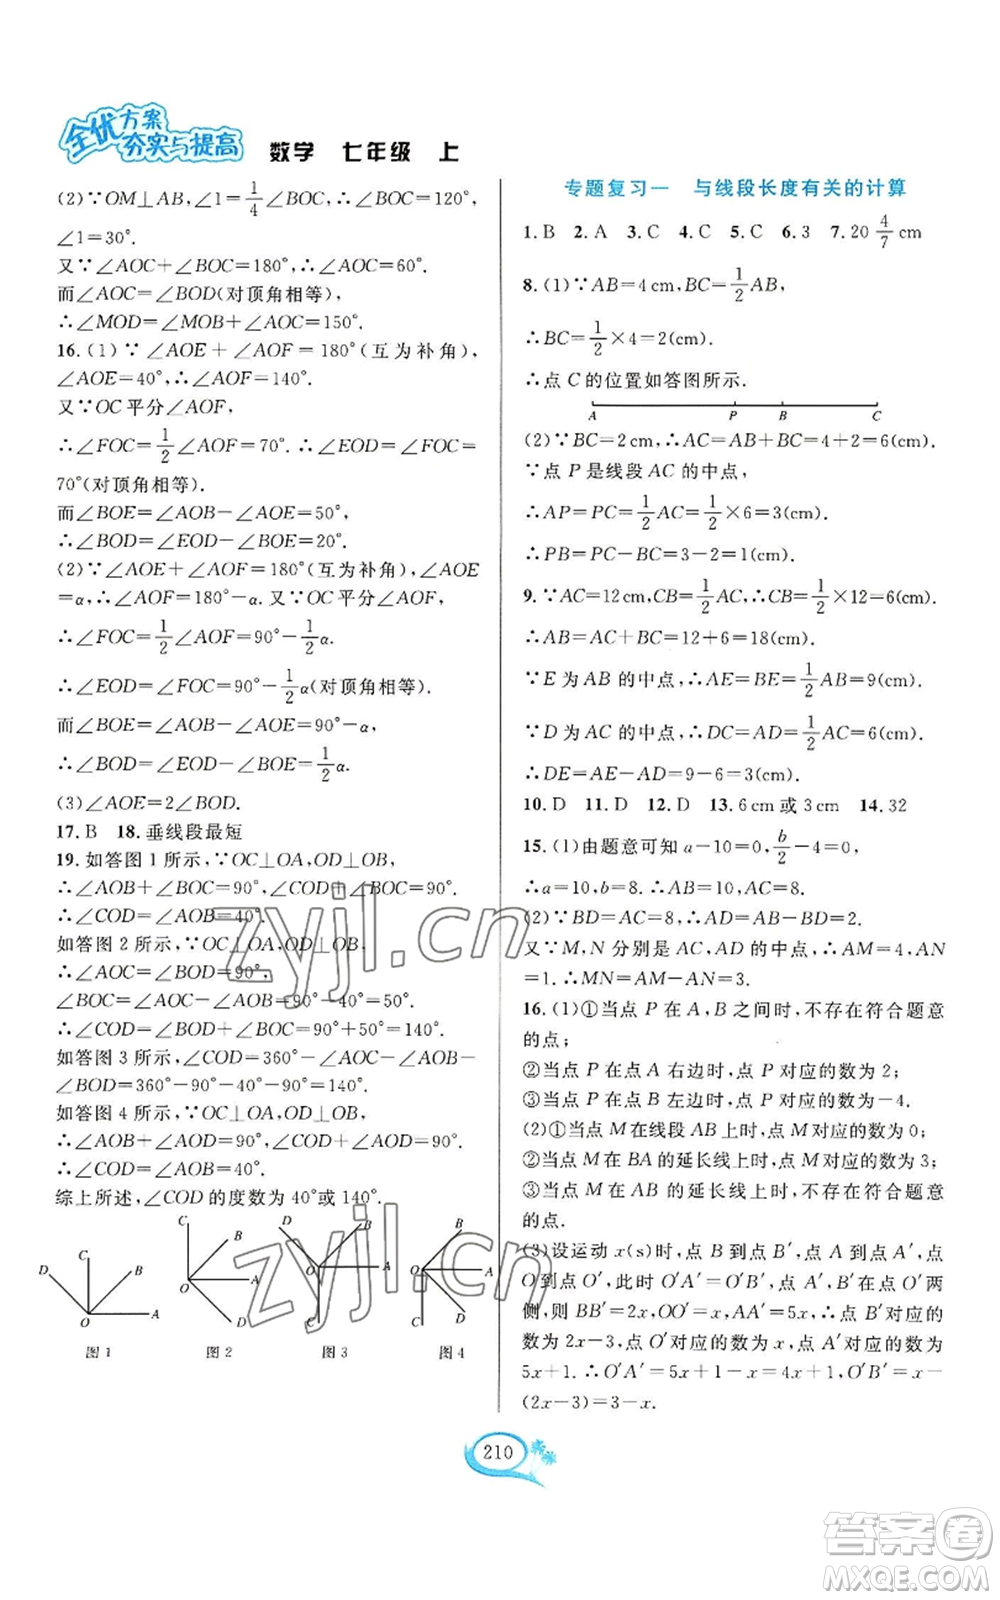 全优方案
夯实与提高 数学 七年级 上
(2)∵OM⊥AB,∠1=1/4∠BOC,∴∠BOC=120°,
∠1=30°.
又∵∠AOC+∠BOC=180°,∴∠AOC=60°.
而∠AOC=∠BOD(对顶角相等),
∴∠MOD=∠MOB+∠AOC=150°.
16.(1)∵∠AOE+∠AOF=180°(互为补角),
∠AOE=40°,∴∠AOF=140°.
又∵OC平分∠AOF,
∴∠FOC=1/2∠AOF=70°.∴∠EOD=∠FOC=
70°(对顶角相等).
而∠BOE=∠AOB-∠AOE=50°,
∴∠BOD=∠EOD-∠BOE=20°.
(2)∵∠AOE+∠AOF=180°(互为补角),∠AOE
=α,∴∠AOF=180°-α.又∵OC平分∠AOF,
∴∠FOC=1/2∠AOF=90°-1/2α.
∴∠EOD=∠FOC=90°-1/2α(对顶角相等).
而∠BOE=∠AOB-∠AOE=90°-α,
∴∠BOD=∠EOD-∠BOE=1/2α.
(3)∠AOE=2∠BOD.
17.B 18.垂线段最短
19.如答图1所示,∵OC⊥OA,OD⊥OB,
∴∠AOB+∠BOC=90°,∠BOC+∠COD=90°.
∴∠COD=∠AOB=40°.
如答图2所示,∵OC⊥OA,OD⊥OB,
∴∠AOC=∠BOD=90°,
∠BOC=∠AOC-∠AOB=90°-40°=50°.
∴∠COD=∠BOD+∠BOC=90°+50°=140°.
如答图3所示,∠COD=360°-∠AOC-∠AOB-
∠BOD=360°-90°-40°-90°=140°.
如答图4所示,∵OC⊥OA,OD⊥OB,
∴∠AOB+∠AOD=90°,∠COD+∠AOD=90°.
∴∠COD=∠AOB=40°.
综上所述,∠COD的度数为40°或140°.
D C B O A
图1
C B O A D
图2
D B O A C
图3
B O A C D
图4
专题复习一 与线段长度有关的计算
1.B 2.A 3.C 4.C 5.C 6.3 7.20 4/7 cm
8.(1)∵AB=4cm,BC=1/2AB,
∴BC=1/2×4=2(cm).
∴点C的位置如答图所示.
A P B C
(2)∵BC=2cm,∴AC=AB+BC=4+2=6(cm).
∵点P是线段AC的中点,
∴AP=PC=1/2AC=1/2×6=3(cm).
∴PB=PC-BC=3-2=1(cm).
9.∵AC=12cm,CB=1/2AC,∴CB=1/2×12=6(cm).
∴AB=AC+BC=12+6=18(cm).
∵E为AB的中点,∴AE=BE=1/2AB=9(cm).
∵D为AC的中点,∴DC=AD=1/2AC=6(cm).
∴DE=AE-AD=9-6=3(cm).
10.D 11.D 12.D 13.6cm或3cm 14.32
15.(1)由题意可知a-10=0,b/2-4=0,
∴a=10,b=8.∴AB=10,AC=8.
(2)∵BD=AC=8,∴AD=AB-BD=2.
又∵M,N分别是AC,AD的中点,∴AM=4,AN
=1.∴MN=AM-AN=3.
16.(1)①当点P在A,B之间时,不存在符合题意
的点;
②当点P在点A右边时,点P对应的数为2;
③当点P在点B左边时,点P对应的数为-4.
(2)①当点M在线段AB上时,点M对应的数为0;
②当点M在BA的延长线上时,点M对应的数为3;
③当点M在AB的延长线上时,不存在符合题意
的点.
(3)设运动x(s)时,点B到点B′,点A到点A′,点
O到点O′,此时O′A′=O′B′,点A′,B′在点O′两
侧,则BB′=2x,OO′=x,AA′=5x,∴点B′对应的
数为2x-3,点O′对应的数为x,点A′对应的数为
5x+1.∴O′A′=5x+1-x=4x+1,O′B′=x-
(2x-3)=3-x.
210
zyjl.cn
zyjl.cn
答案卷
MXQE.COM